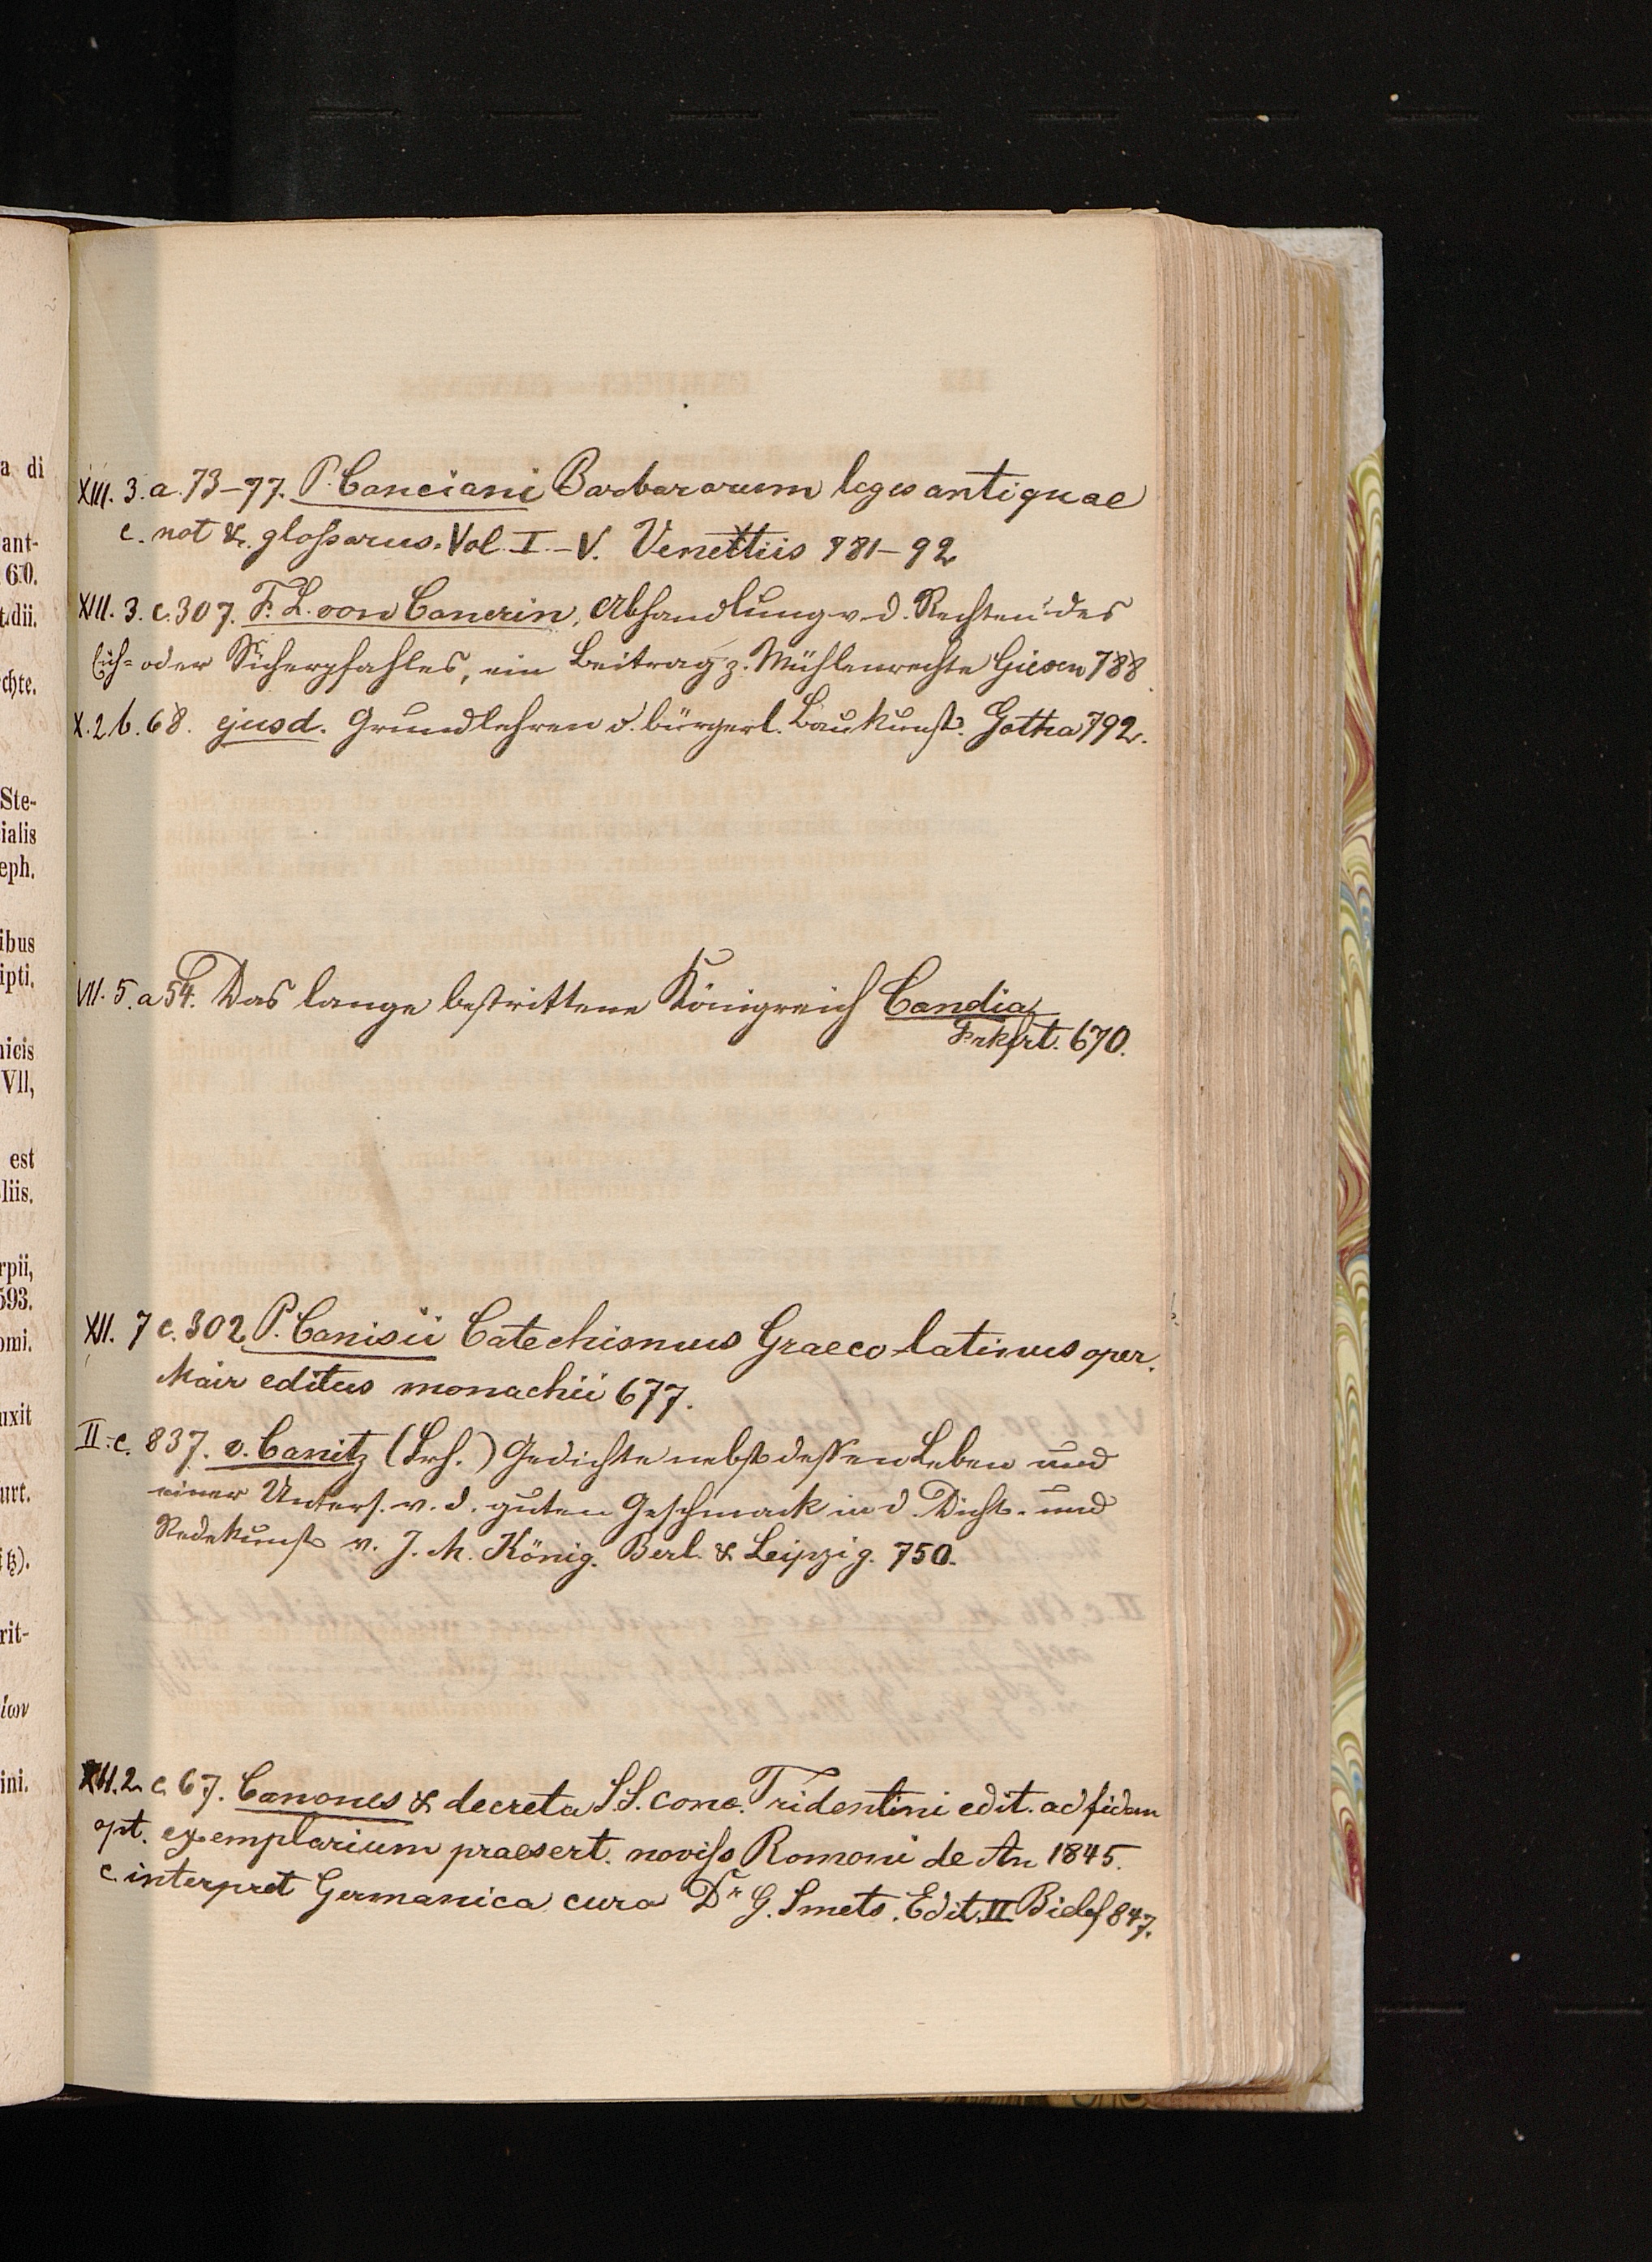 XIII. 3. a. 73–77. P. Canciani Barbararum leges antiquae
c. not &. gloßarus. Vol. I.–V. Venettiis 781–92
XII. 3. c. 307. F. L. von Canerin, Abhandlung v. d. Rechten des
Eich= oder Sicherpfahles, ein Beitrag z. Mühlenrechte Giesen 788
X. 2 b. 68. ejusd. Grundlehren d. bürgerl. Baukunst. Gotha 792.
VII. 5. a 54. Das lange bestrittene Königreich Candia
Frkfrt. 670.
XII. 7 c. 302 P. Canisii Catechismus Graeco latinus oper.
Mair editus monachii 677.
II. c. 837. v. Canitz (Frh.) Gedichte nebst dessen Leben und
einer Unters. v. d. guten Geschmack in d. Dicht- und
Redekunst v. J. M. König. Berl. & Leipzig. 750.
XII. 2. c 67. Canones & decreta S.S. conc. Tridentini edit. ad fidem
opt. exemplarium praesert. noviss Romani de An 1845.
c. interpret Germanica cura Dr G. Smets. Edit. II Bielef 847.
a di
ant-
60.
t.dii.
chte.
Ste-
ialis
eph.
ibus
ipti.
nicis
VII,
est
liis.
rpii,
593.
omi.
uxit
urt.
itz).
rit-
ίων
ini.